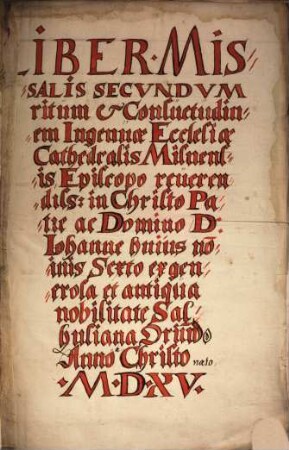 LIBER·MIS
SALIS SECVNDVM
ritum & Conſuetudin
em Ingenuæ Eccleſiæ
Cathedralis Miſnenſ
is Epiſcopo reueren
diſs: in Chriſto Pa
tre ac Domino D:
Iohanne huius nō
inis Sexto ex gen
eroſa et antiqua
nobilitate Sal
huſiana Oriūdo
Anno Chriſto nato
·M·D·XV·